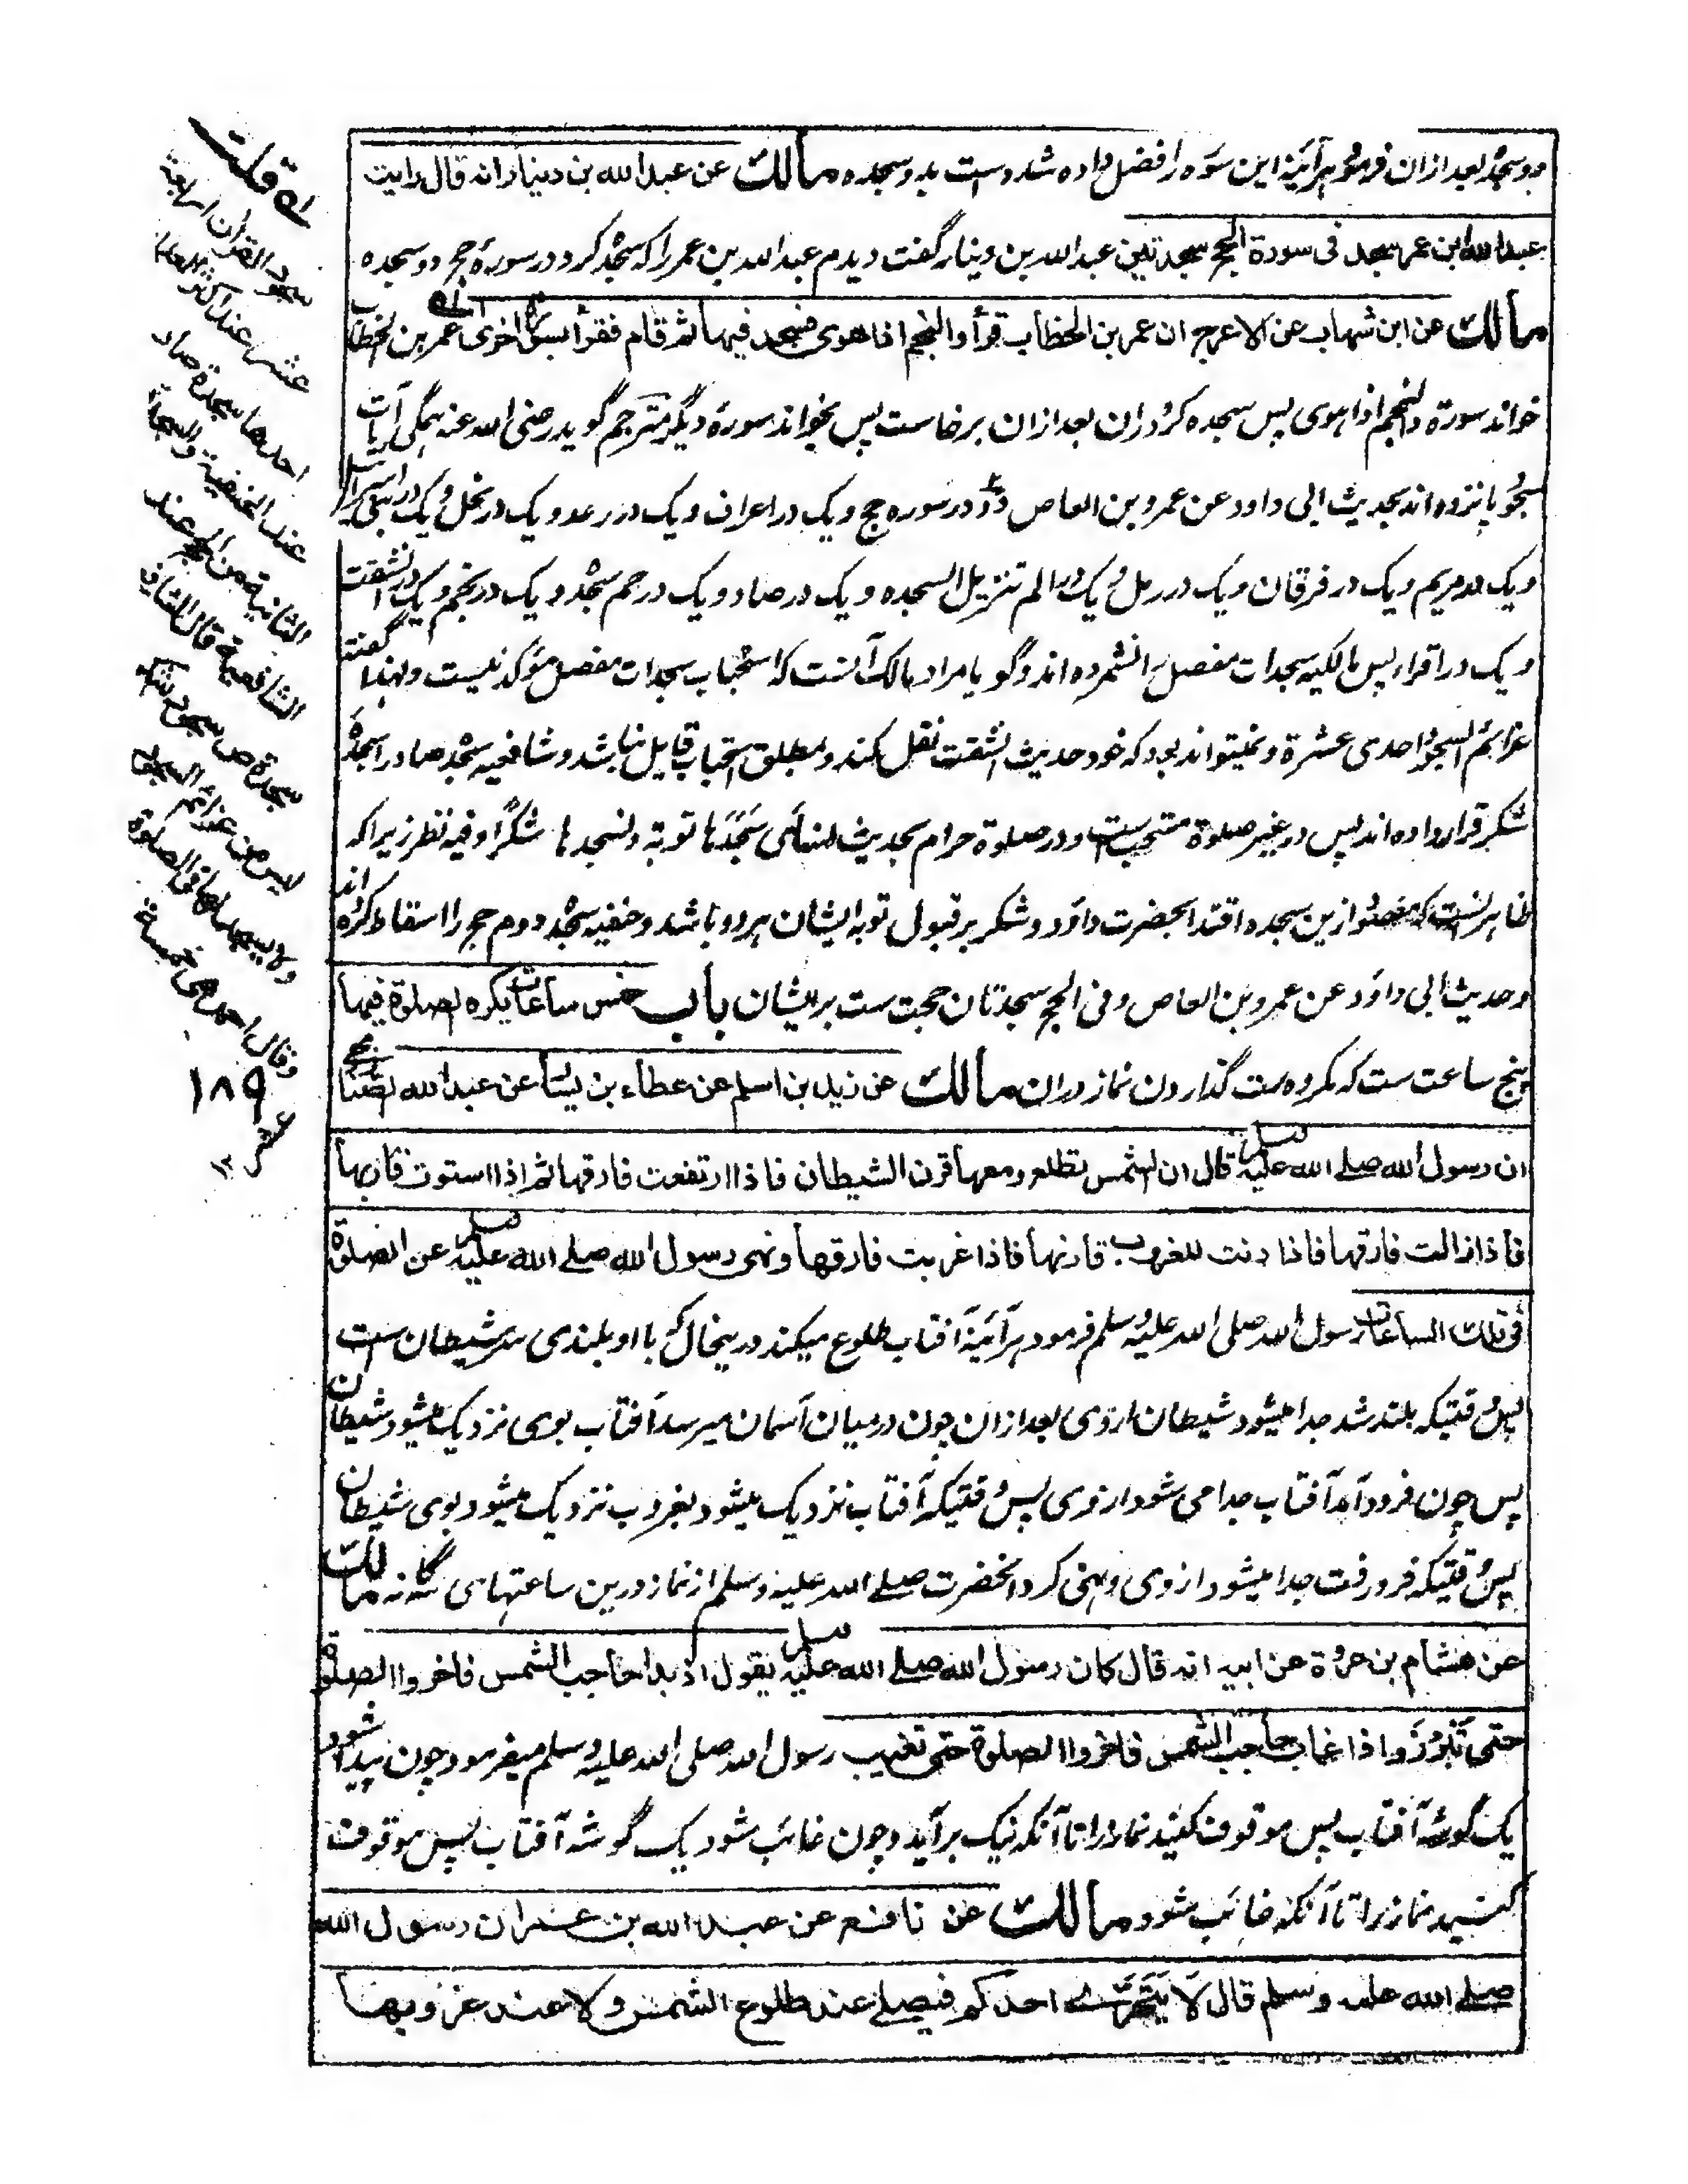 دو سجده بعد ازان فرمود هرآئینه این سوره را فضل داده شده است بدو سجده مالك عن عبد الله بن دينار انه قال رايت
عبد الله ابن عمر سجد فی سورة الحج سجدتين عبد الله بن دینار گفت دیدم عبد الله بن عمر را که سجده کرد در سورهٔ حج دو سجده
مالك عن ابن شهاب عن الاعرج ان عمر بن الخطاب قرأ والنجم اذا هوى فسجد فيها ثم قام فقرأ بسورة اخرى عمر بن الخطاب
خواند سورة والنجم اذا هوی پس سجده کرد دران بعد ازان برخاست پس بخواند سورهٔ دیگر مترجم گوید رضی الله عنه همگی آیات
سجود پانزده اند بحدیث ابی داود عن عمرو بن العاص دو در سوره حج و یک در اعراف و یک در رعد و یک در نحل و یک در بنی اسرائیل
و یک در مریم و یک در فرقان و یک در نمل و یک در الم تنزیل السجده و یک در صاد و یک در حم سجده و یک در نجم و یک در انشقت
و یک در اقرا پس مالکیه سجدات مفصل را نشمرده اند و گویا مراد مالک آنست که استحباب سجدات مفصل مؤکد نیست ولهذا گفته
عزائم السجود احدی عشرة و نمیتواند بود که خود حدیث انشقت نقل کند و بمطلق استحباب قایل نباشد و شافعیه سجده صاد را سجدهٔ
شکر قرار داده اند پس در غیر صلوة مستحب ست و در صلوة حرام بحدیث نسائی سجدها توبة ونسجدها شكرًا وفیه نظر زیرا که
ظاهر آنست که مقصود ازین سجده اقتدا بحضرت داؤد و شکر بر قبول توبه ایشان هر دو باشد و حنفیه سجده دوم حج را اسقاط کرده اند
و حدیث ابی داؤد عن عمرو بن العاص وفی الحج سجدتان حجت ست بر ایشان باب خمس ساعات يكره الصلوة فيها
پنج ساعت ست که مکروه ست گذاردن نماز دران مالك عن زيد بن اسلم عن عطاء بن يسار عن عبد الله الصنابحي
ان رسول الله صلے الله عليه وسلم قال ان الشمس تطلع ومعها قرن الشيطان فاذا ارتفعت فارقها ثم اذا استوت قارنها
فاذا زالت فارقها فاذا دنت للغروب قارنها فاذا غربت فارقها ونهى رسول الله صلے الله عليه وسلم عن الصلوة
فی تلك الساعات رسول الله صلی الله علیه وسلم فرمود هرآئینه آفتاب طلوع میکند در ینحال که با او بلندی سر شیطان ست
پس وقتیکه بلند شد جدا میشود شیطان از وی بعد ازان چون درمیان آسمان میرسد آفتاب بوی نزدیک میشود شیطان
پس چون فرود آمد آفتاب جدا می شود از وی پس وقتیکه آفتاب نزدیک میشود بغروب نزدیک میشود بوی شیطان
پس وقتیکه فرو رفت جدا میشود از وی و نهی کرد آنحضرت صلے الله علیه وسلم از نماز درین ساعتهای سه گانه مالك
عن هشام بن عروة عن ابيه انه قال كان رسول الله صلے الله عليه وسلم يقول اذا بدا حاجب الشمس فاخروا الصلوة
حتى تَبْرُزَ واذا غاب حاجب الشمس فاخروا الصلوة حتى تغيب رسول الله صلی الله علیه وسلم میفرمود چون پیدا شود
یک گوشهٔ آفتاب پس موقوف کنید نماز را تا آنکه نیک برآید و چون غائب شود یک گوشه آفتاب پس موقوف
کنید نماز را تا آنکه غائب شود مالك عن نافع عن عبد الله بن عمر ان رسول الله
صلے الله عليه وسلم قال لا يتحرى احدكم فيصلے عند طلوع الشمس ولا عند غروبها
له قلت
سجود القرآن اربعة
عشر عند اكثر العلماء
احدها سجدة صاد
عند الحنفية والسجدة
الثانية من الحج عند
الشافعية قال الشافعي
سجدة ص سجود شكر
ليس من عزائم السجود
ولا يسجدها فی الصلوة
وقال احمد هی خمسة
عشر ١٢
١٨٩